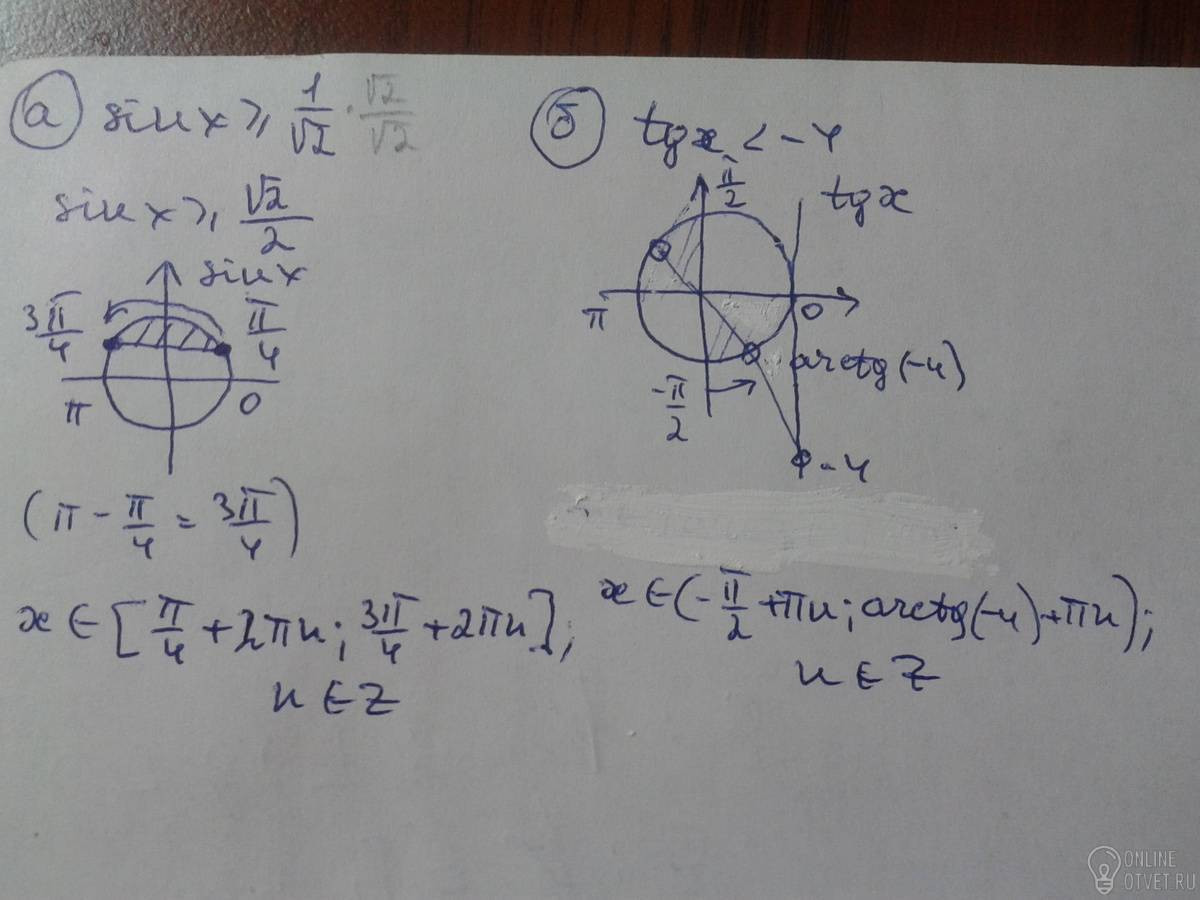 а) sin x ⩾ 1/√2 · √2/√2
sin x ⩾ √2/2
sin x
3π/4
π/4
π
0
(π - π/4 = 3π/4)
x ∈ [π/4 + 2πn; 3π/4 + 2πn];
n ∈ Z
б) tg x < -4
π/2
tg x
π
0
arctg(-4)
-π/2
-4
x ∈ (-π/2 + πn; arctg(-4) + πn);
n ∈ Z
ONLINE
OTVET.RU